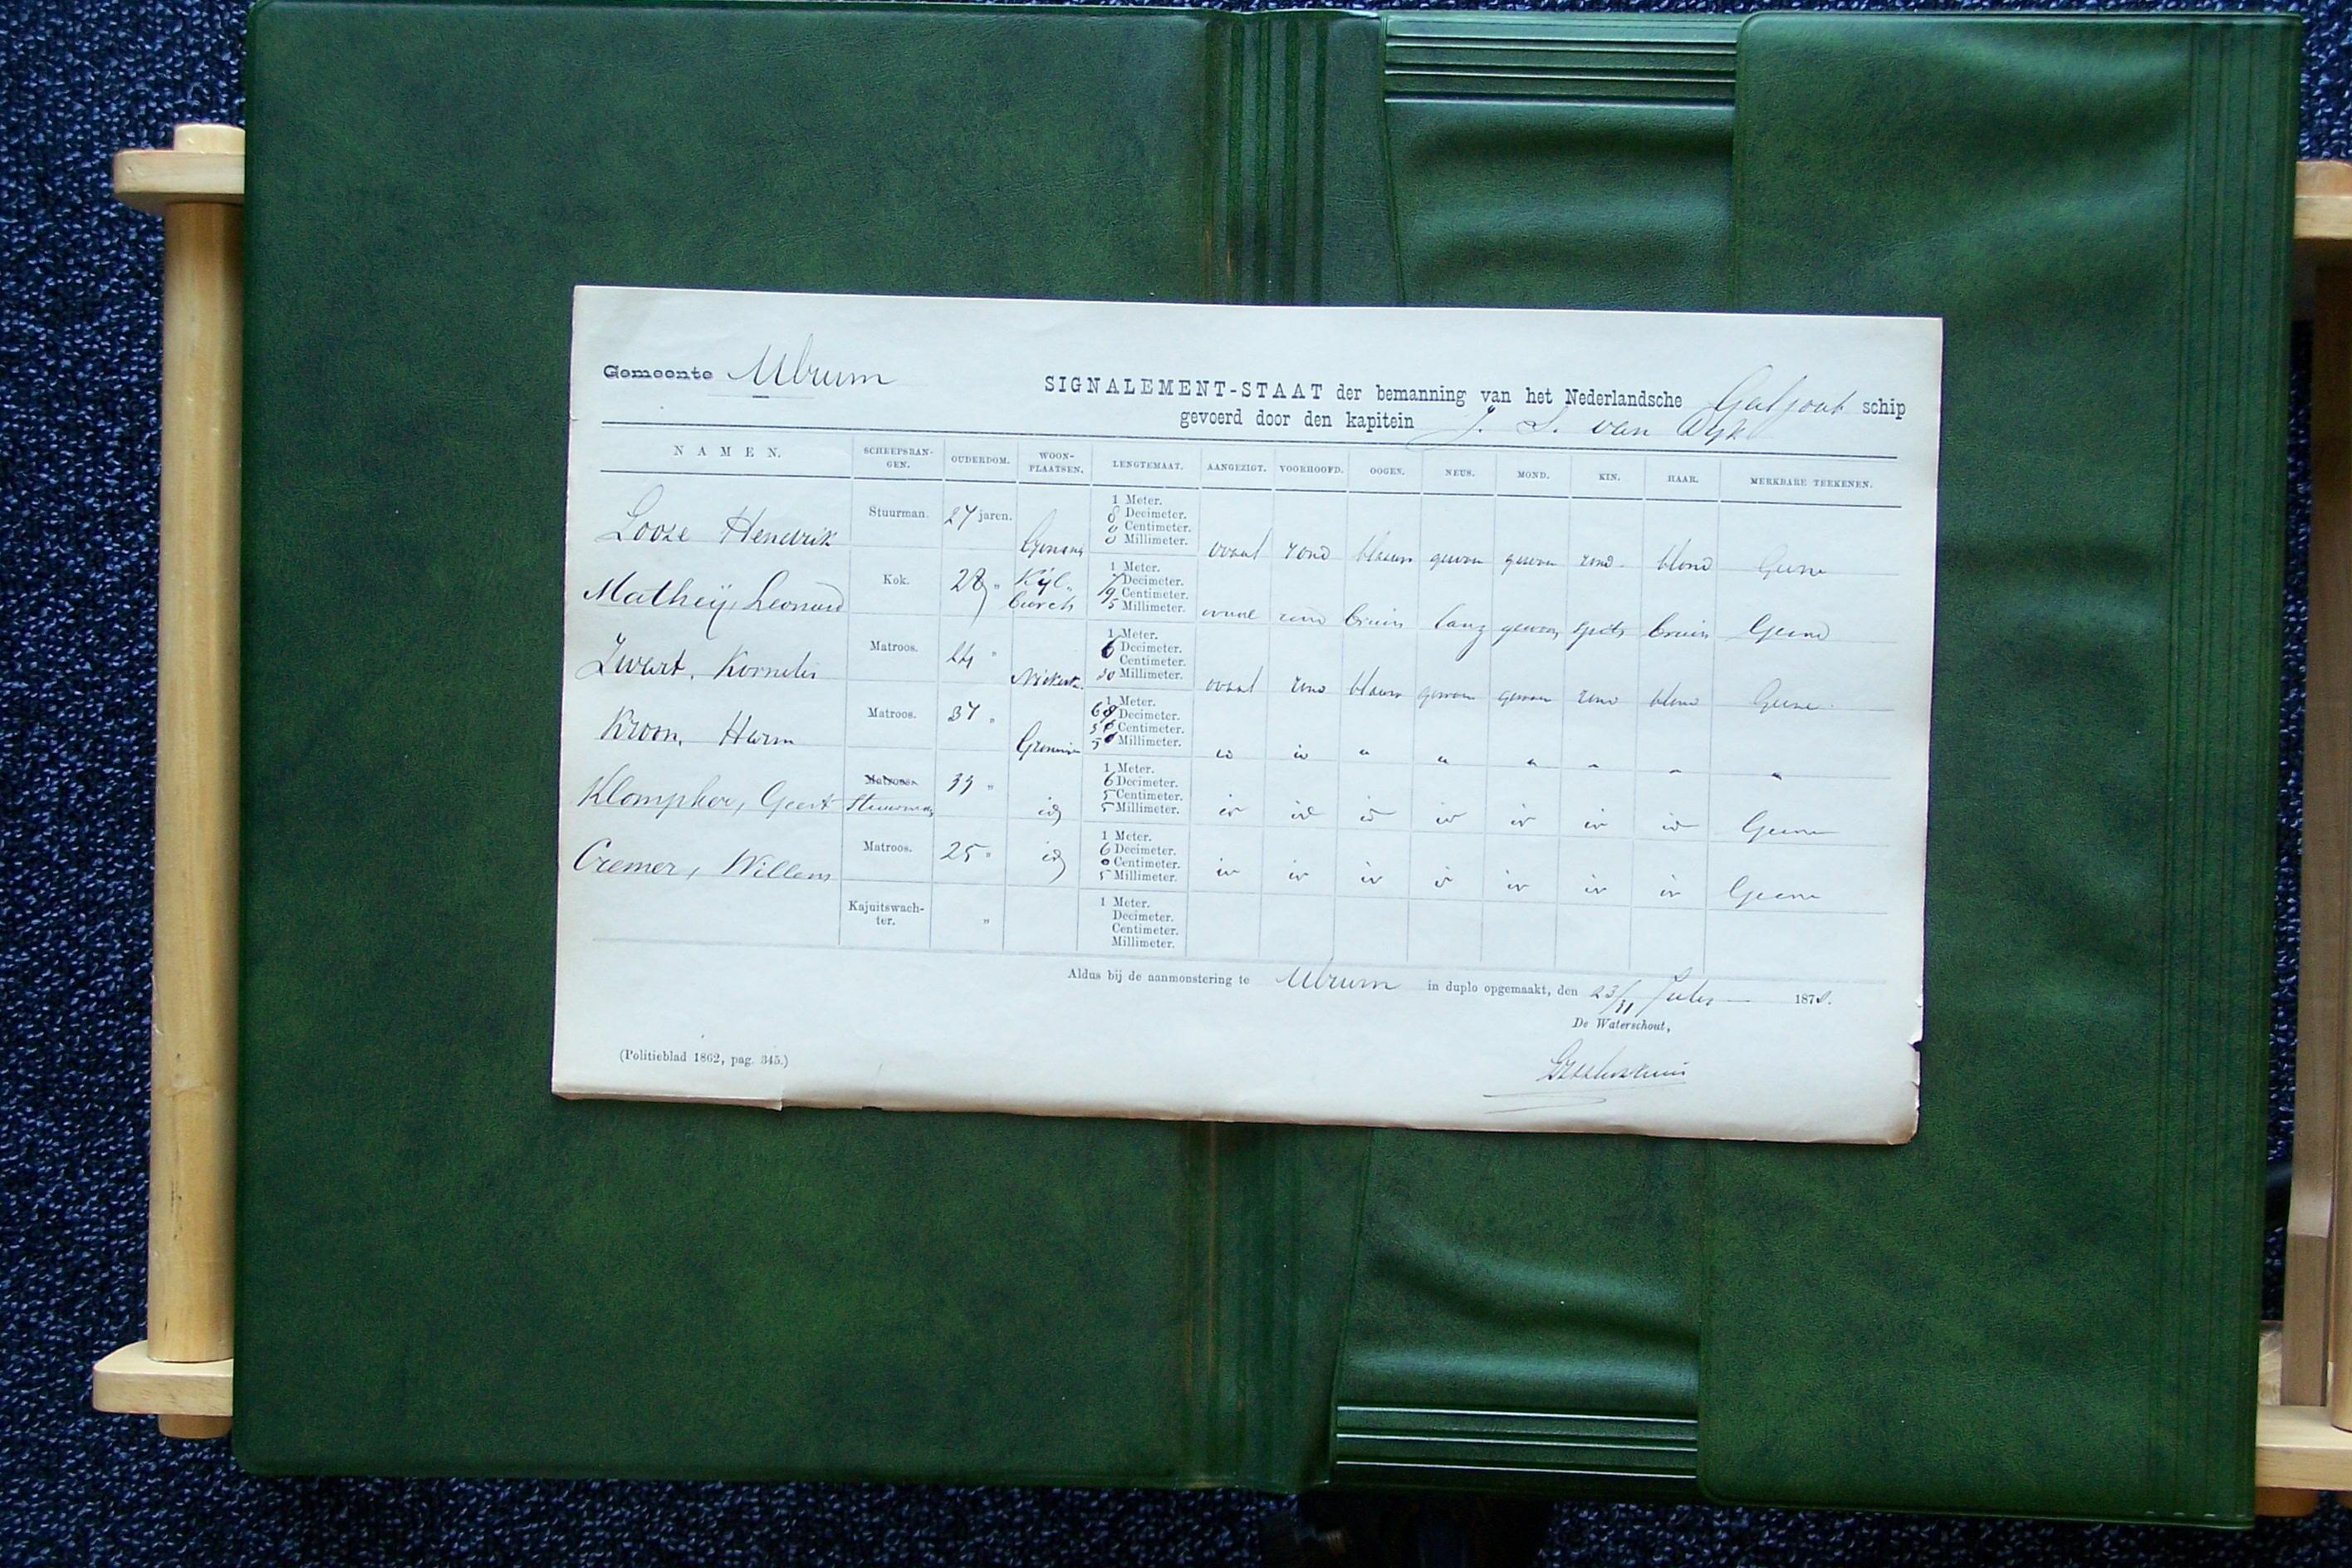 Gemeente Ulrum
SIGNALEMENT-STAAT der bemanning van het Nederlandsche Galjoot schip
gevoerd door den kapitein J. S. van Dijk
NAMEN. SCHEEPSRAN-GEN. OUDERDOM. WOON-PLAATSEN. LENGTEMAAT. AANGEZIGT. VOORHOOFD. OOGEN. NEUS. MOND. KIN. HAAR. MERKBARE TEEKENEN.
Looze Hendrik Stuurman. 27 jaren. 1 Meter. 8 Decimeter. 0 Centimeter. 0 Millimeter. ovaal rond blauw gewoon gewoon rond blond Geene
Matheij, Leonard Kok. 28 " Kijl-burch 1 Meter. 7 Decimeter. 19 Centimeter. 5 Millimeter. ovaal rond bruin lang gewoon spits bruin Geene
Zwart, Kornelis Matroos. 24 " 1 Meter. 6 Decimeter. Centimeter. 20 Millimeter. ovaal rond blauw gewoon gewoon rond blond Geene
Kroon, Harm Matroos. 37 " Groningen 1 Meter. Decimeter. Centimeter. Millimeter. id id " " " " " "
Klompker, Geert Matroos. Stuurman 33 " id 1 Meter. 6 Decimeter. 5 Centimeter. 5 Millimeter. id id id id id id id Geene
Cremer, Willem Matroos. 25 " id 1 Meter. 6 Decimeter. 0 Centimeter. 5 Millimeter. id id id id id id id Geene
Kajuitswach-ter. " 1 Meter. Decimeter. Centimeter. Millimeter.
Aldus bij de aanmonstering te Ulrum in duplo opgemaakt, den 23/31 Julij 1878.
De Waterschout,
(Politieblad 1862, pag. 345.)